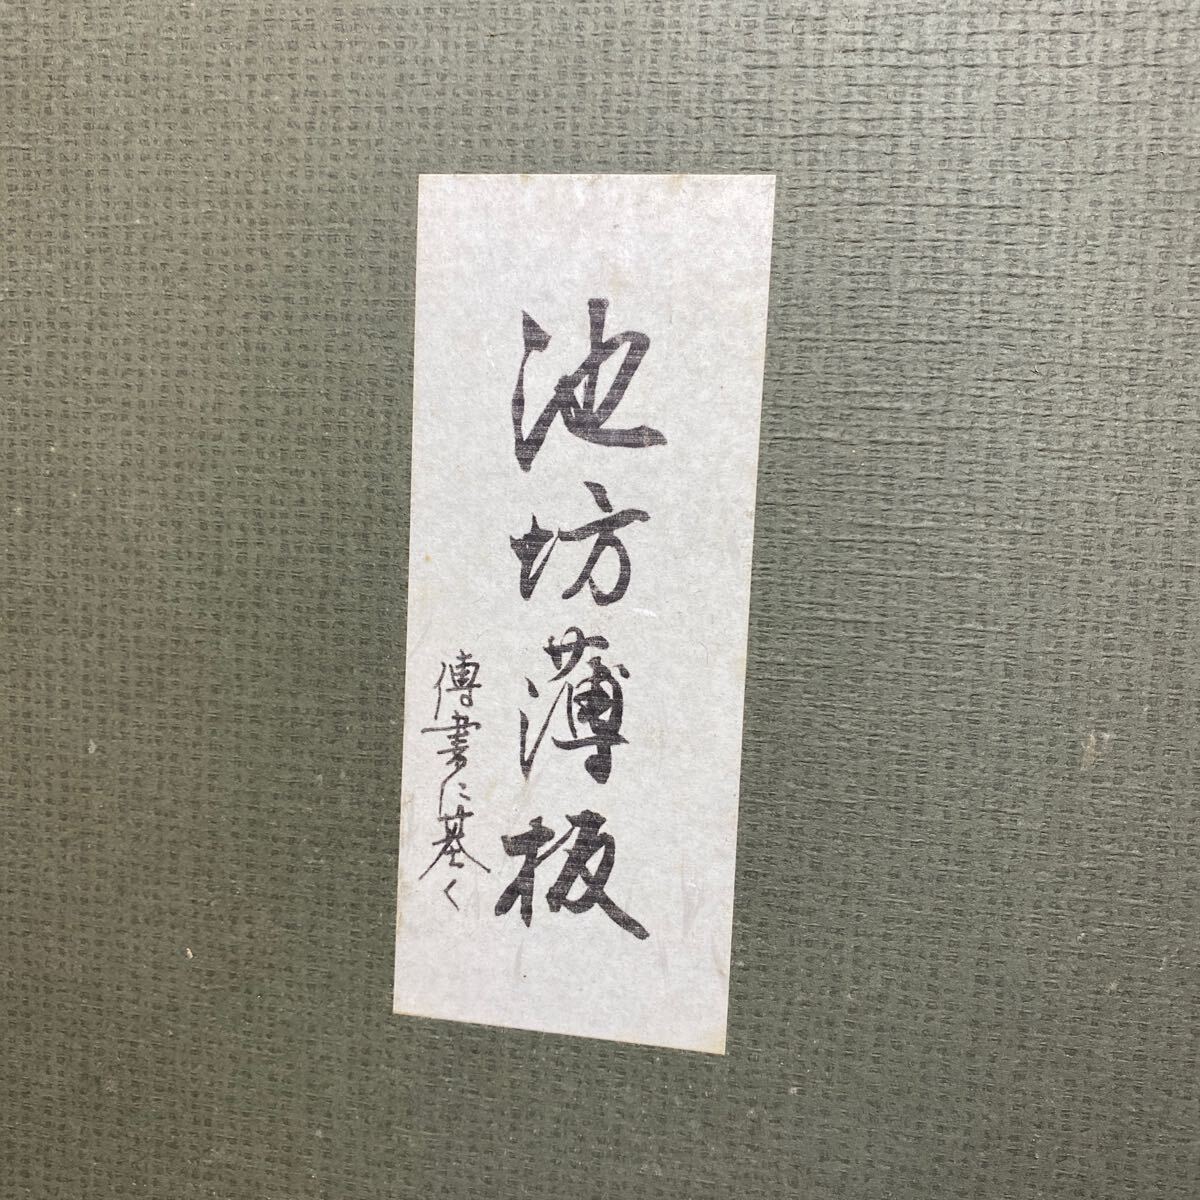 池坊薄板
傳書に基く